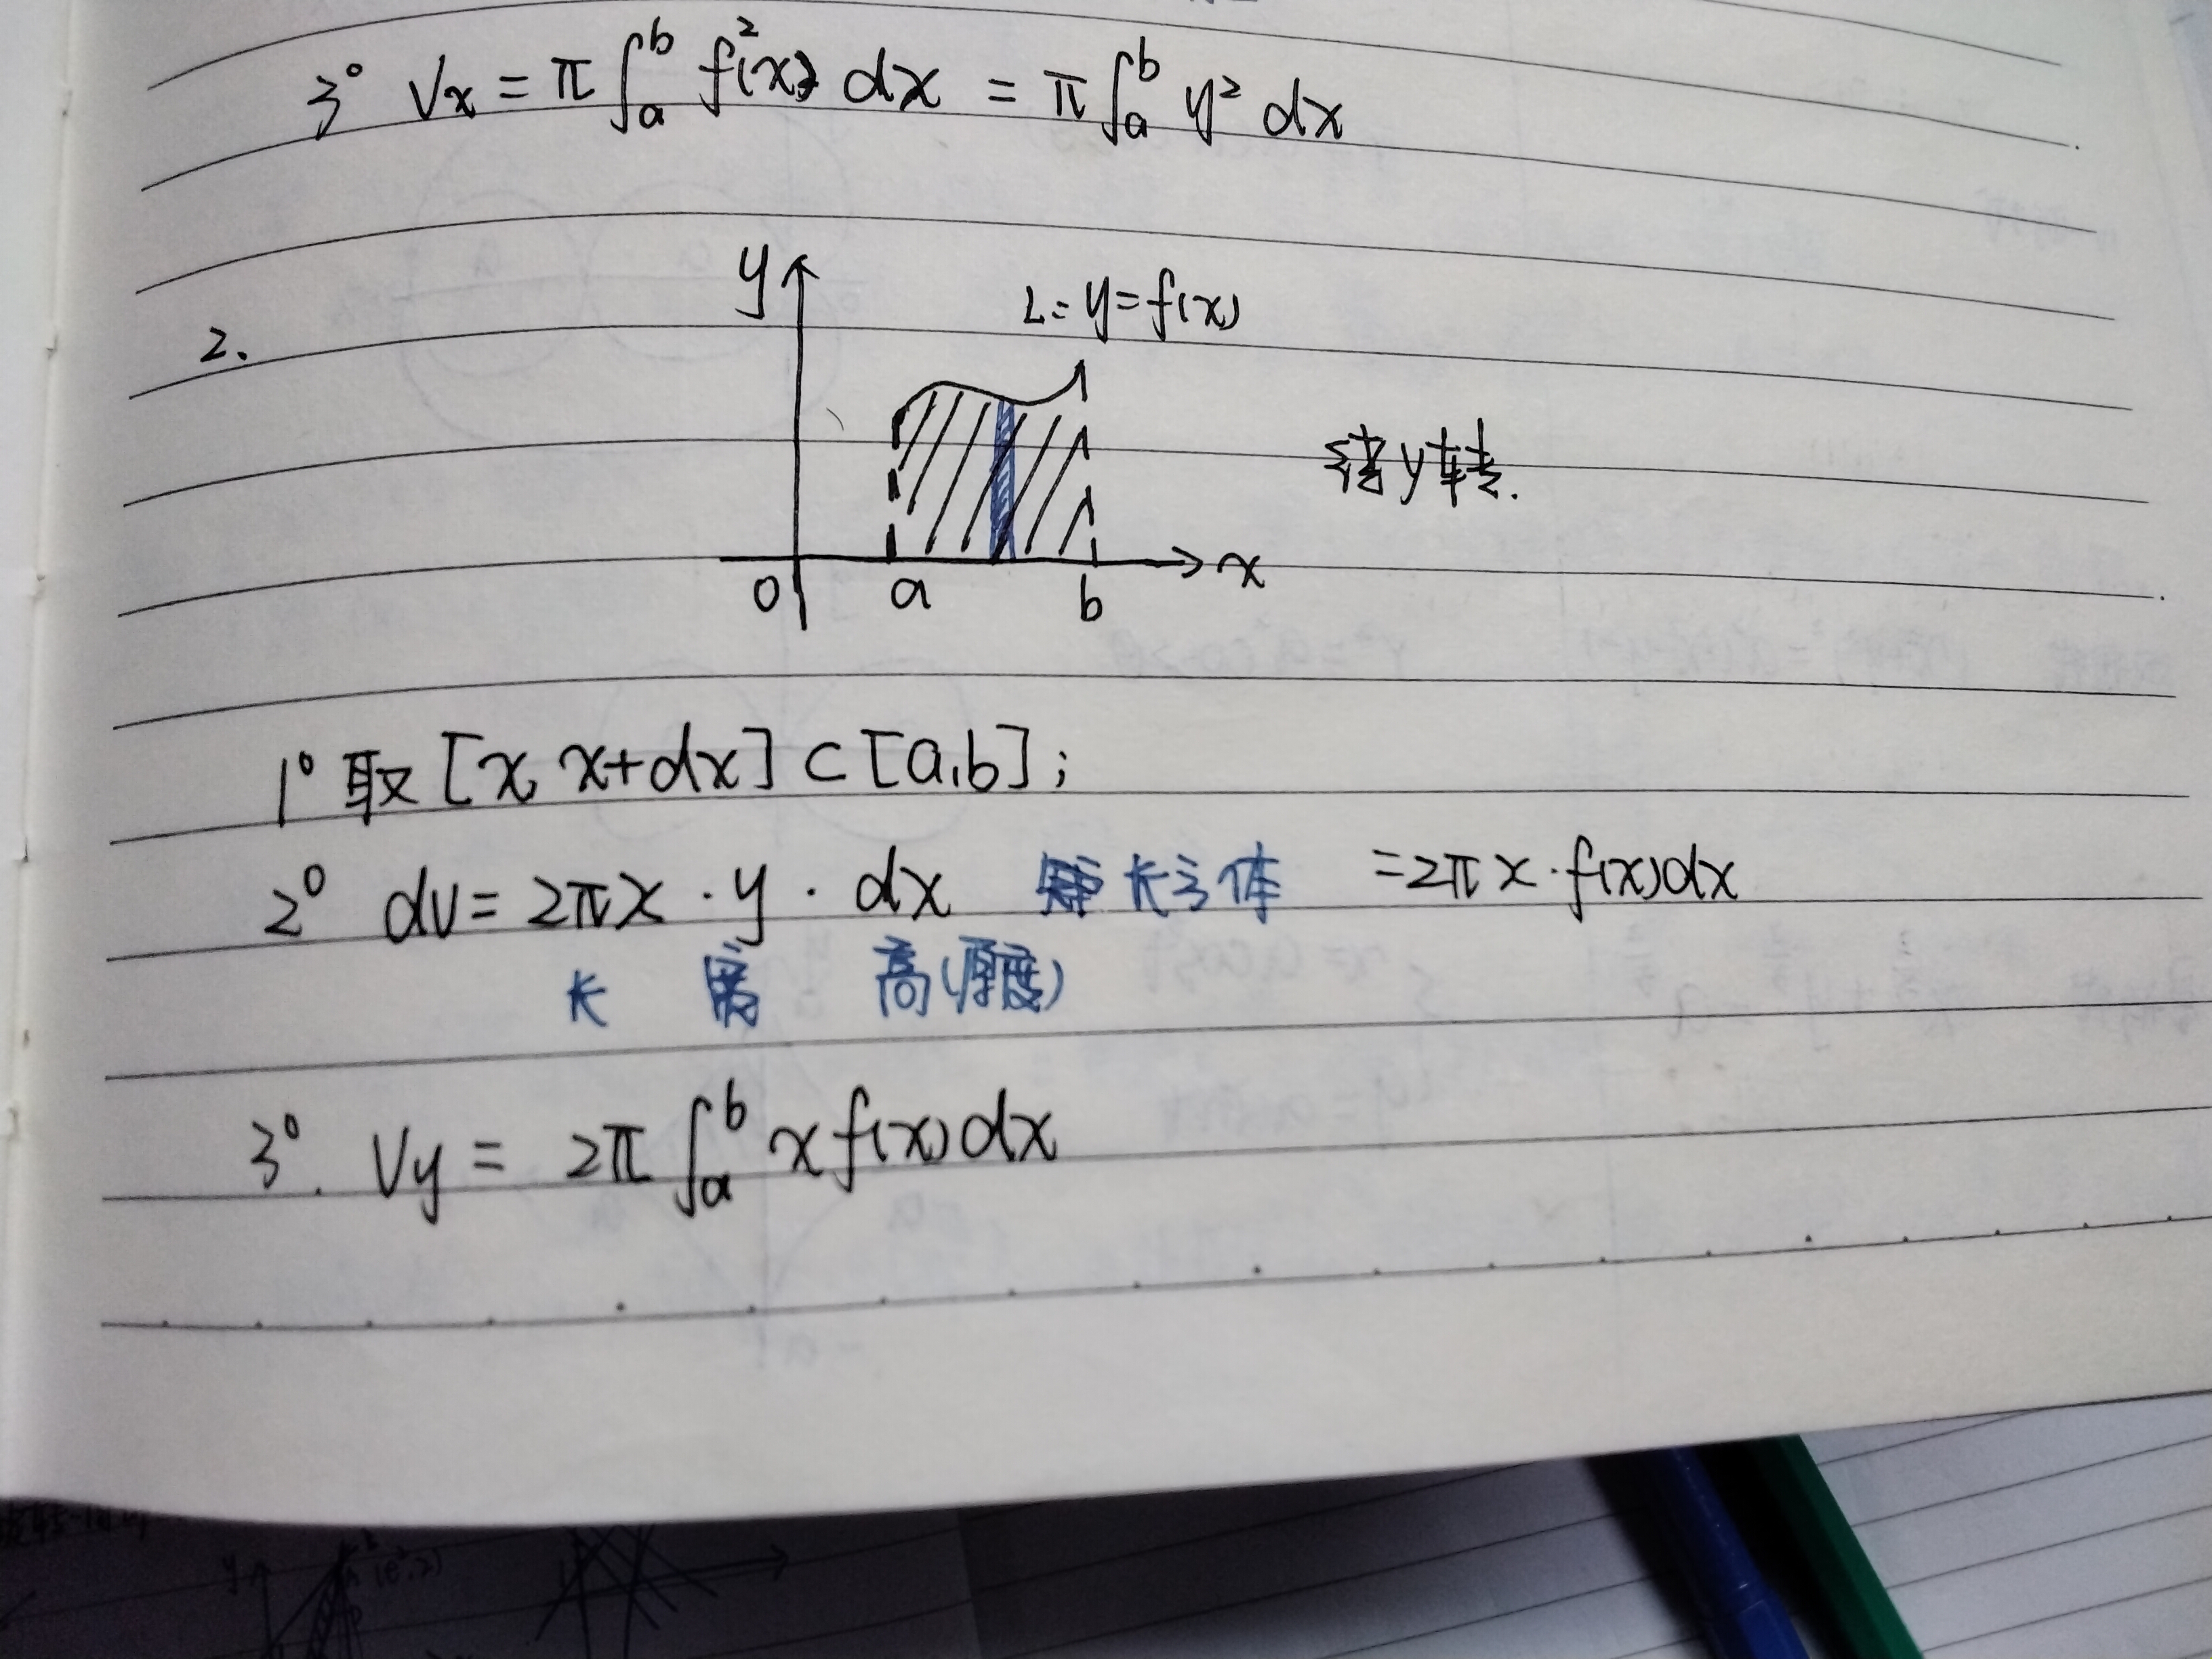 3° Vx = π∫_a^b f²(x) dx = π∫_a^b y² dx
2.
y
L: y=f(x)
绕y转.
0 a b x
1° 取 [x, x+dx] ⊂ [a,b];
2° dv = 2πx · y · dx 长方体 = 2πx · f(x)dx
长 宽 高(厚度)
3°. Vy = 2π∫_a^b x f(x)dx